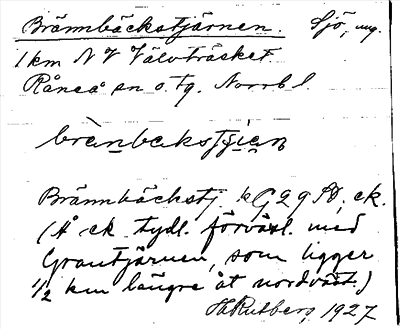 Brännbäckstjärnen. Sjö,
1 km N V Välvträsket
Råneå sn o. tg. Norrb l.
Brännbäckstj. ek.
(Å ek tydl. förväxl. med
Grantjärnen, som ligger
1/2 km längre åt nordväst.)
H Rutberg, 1927